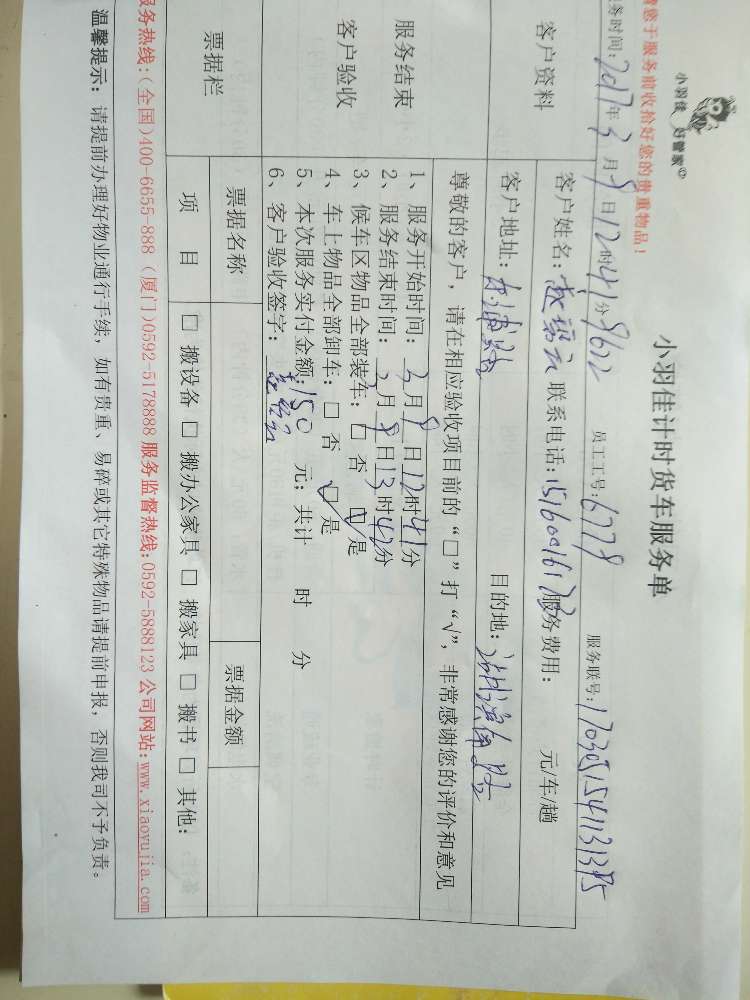 小羽佳 好管家
请您于服务前收拾好您的贵重物品！
小羽佳计时货车服务单
务时间：2017年3月9日12时41分 员工工号：6778 服务联号：
客户资料
客户姓名： 联系电话： 服务费用： 元/车/趟
客户地址： 目的地：
服务结束
客户验收
尊敬的客户，请在相应验收项目前的“□”打“√”，非常感谢您的评价和意见
1、服务开始时间：3月9日12时41分
2、服务结束时间：3月9日13时42分
3、候车区物品全部装车：□ 否 □√是
4、车上物品全部卸车：□ 否 □√是
5、本次服务实付金额：150 元；共计 时 分
6、客户验收签字：
票据栏
票据名称 票据金额
项 目 □ 搬设备 □ 搬办公家具 □ 搬家具 □ 搬书 □ 其他：
服务热线：(全国)400-6655-888 (厦门)0592-5178888 服务监督热线：0592-5888123 公司网站：www.xiaoyujia.com
温馨提示：请提前办理好物业通行手续，如有贵重、易碎或其它特殊物品请提前申报，否则我司不予负责。